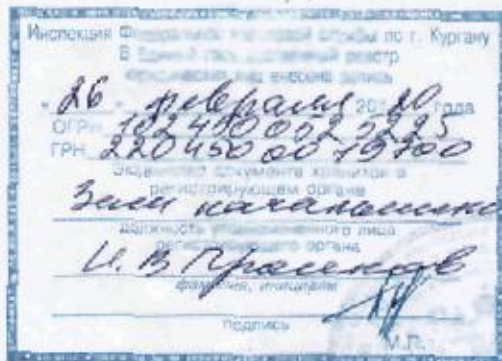 Инспекция Федеральной налоговой службы по г. Кургану
В Единый государственный реестр
юридических лиц внесена запись
" 26 " февраля 2020 года
ОГРН 1024500025225
ГРН 2204500019700
Экземпляр документа хранится в
регистрирующем органе
Зам начальника
должность уполномоченного лица
регистрирующего органа
И. В.
фамилия, инициалы
подпись
М.П.